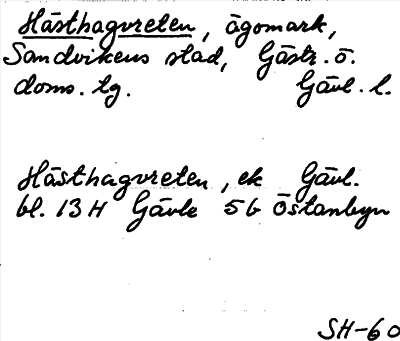 Hästhagvreten, ägomark,
Sandvikens stad, Gästr. ö.
doms. tg. Gävl. l.
Hästhagvreten, ek Gävl.
bl. 13 H Gävle 5b Östanbyn
SH-60